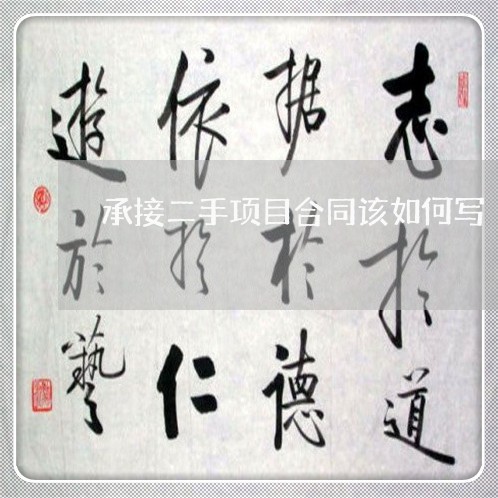 志於道
据於德
依於仁
遊於藝
承接二手项目合同该如何写